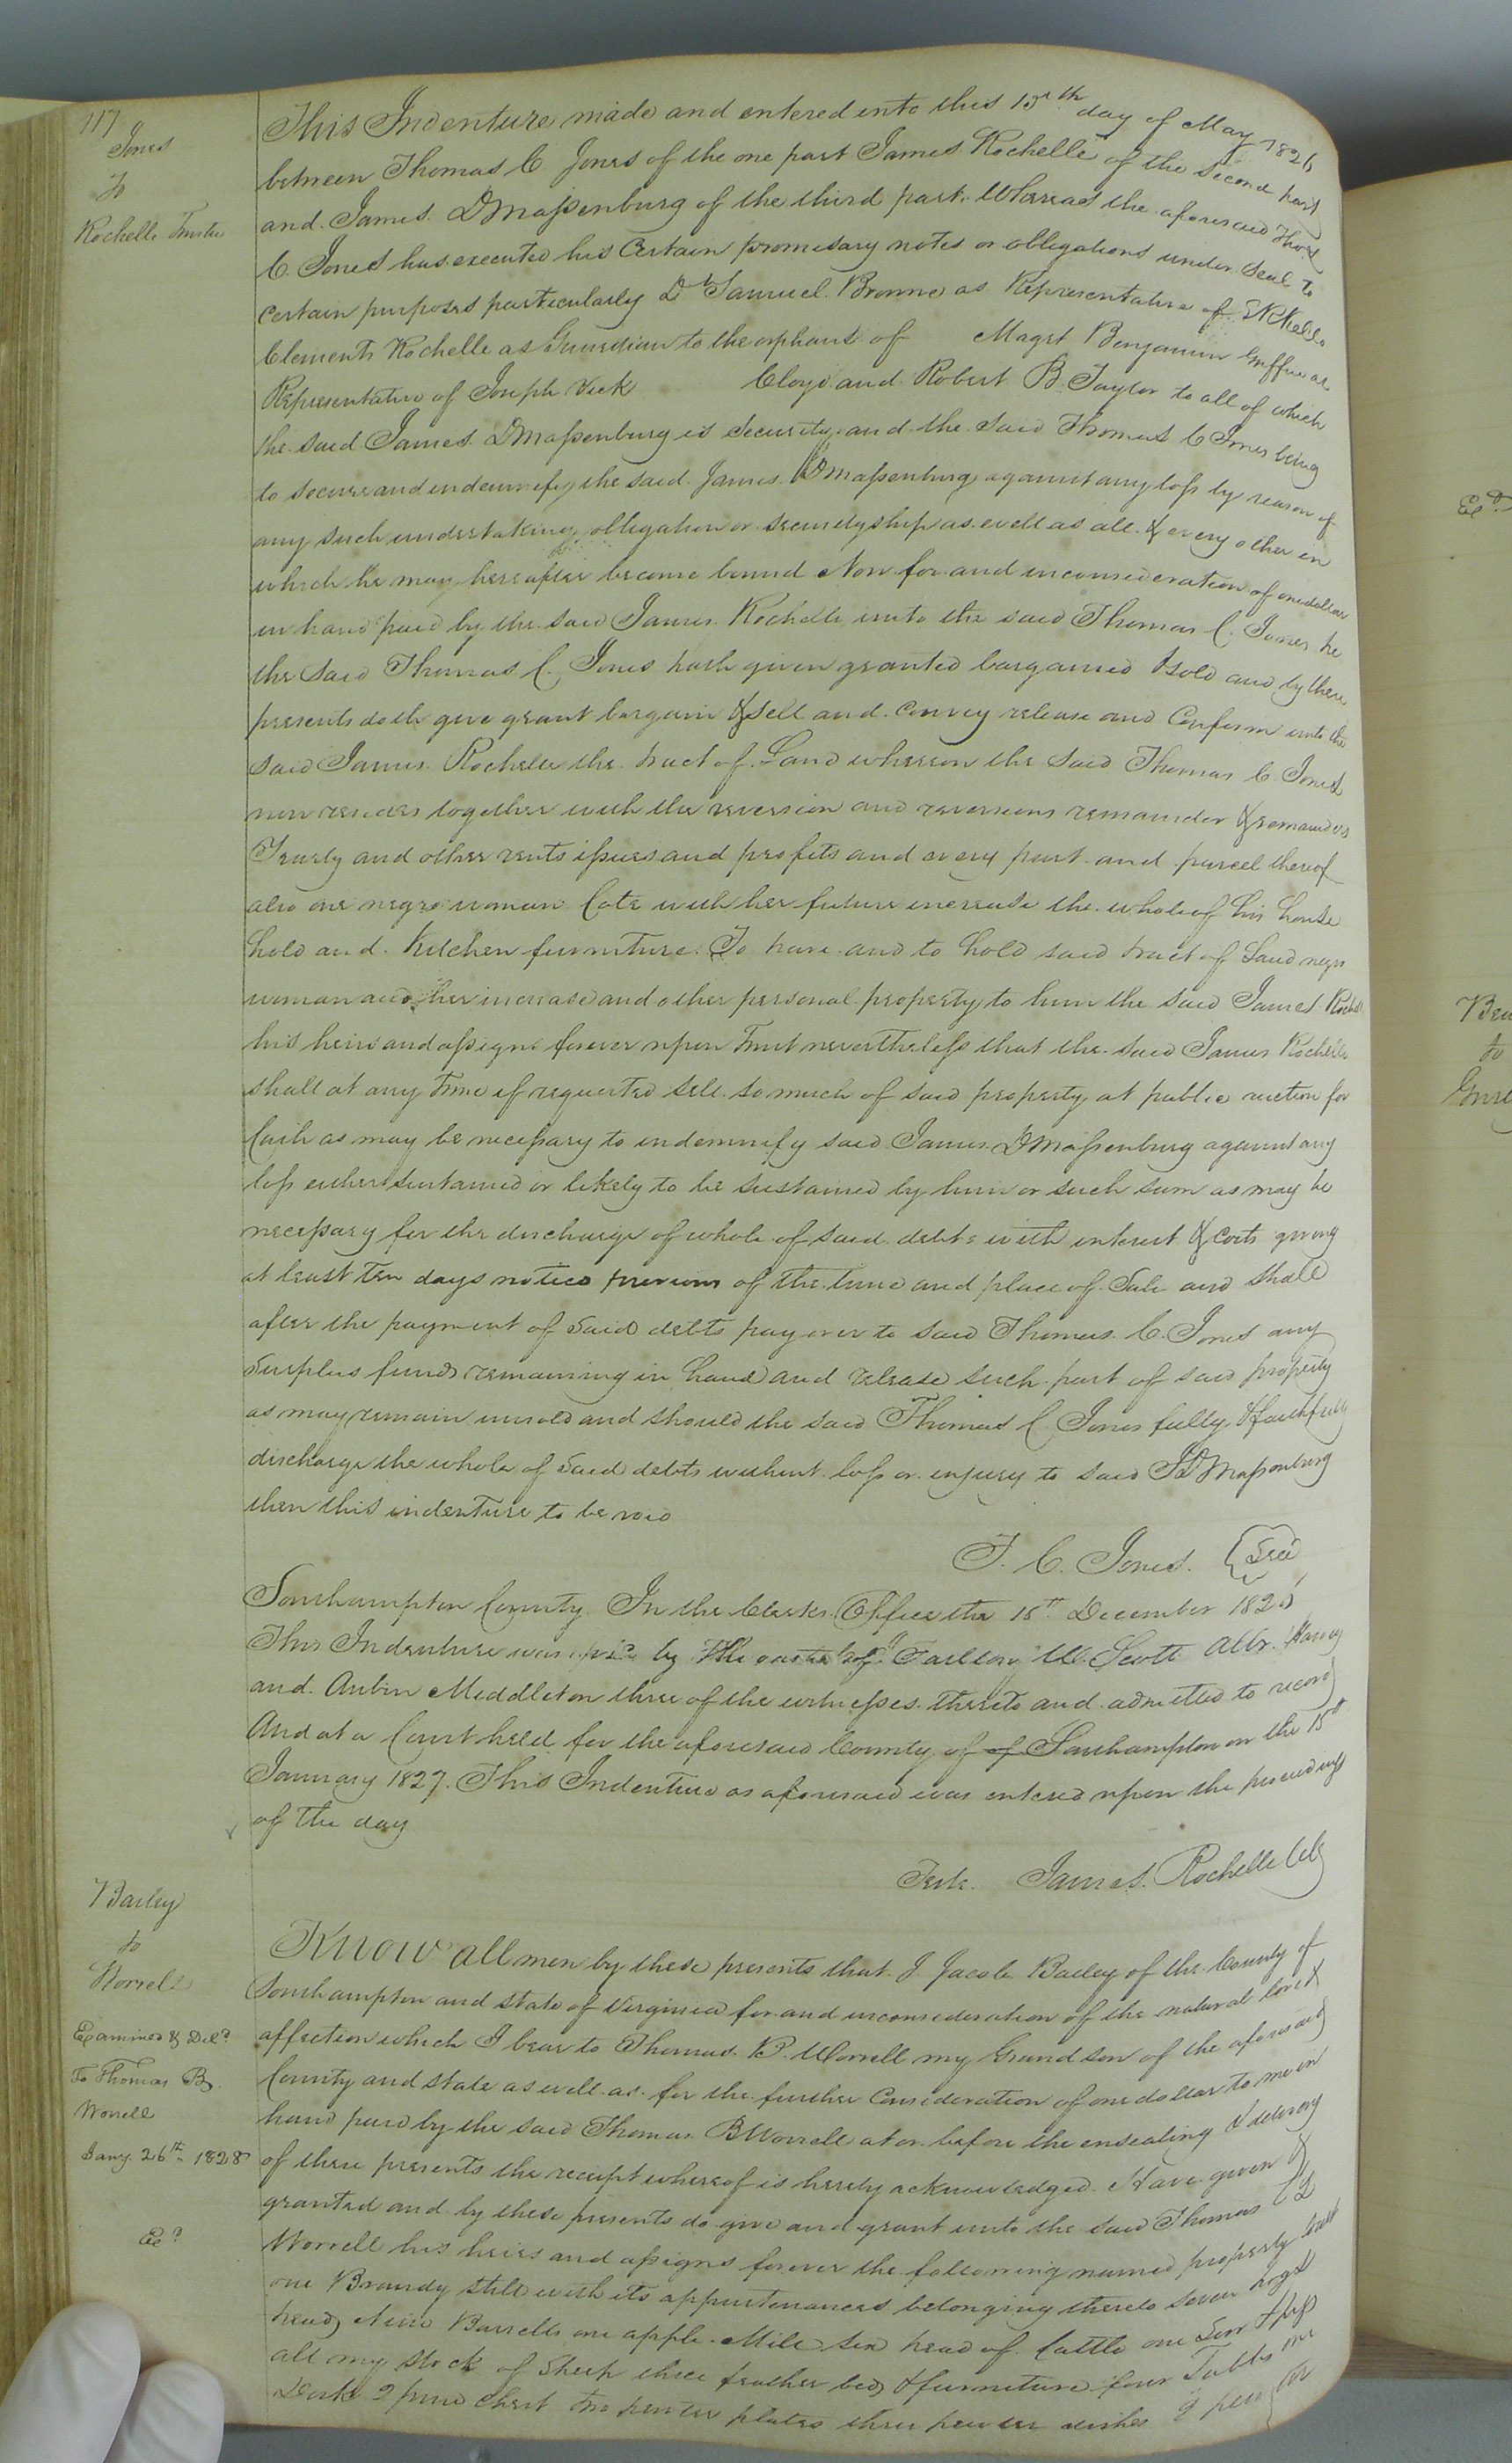 117
Jones
To
Rochelle Trustee
This Indenture made and entered into this 15th day of May 1826
between Thomas C Jones of the one part James Rochelle of the second part
and James D Massenburg of the third part. Whereas the aforesaid Thos
C. Jones has executed his Certain promisary notes or obligations under seal to
certain purposes particularly Dr Samuel Browne as Representative of
Clements Rochelle as Guardian to the orphans of Magst Benjamin Griffin as
Representative of Joseph Vick Cloyd and Robert B. Taylor to all of which
the said James D Massenburg is Security and the said Thomas C Jones being
to secure and indemnify the said James D Massenburg against any loss by reason of
any such undertaking obligation or securityship as well as all & every other in
which he may hereafter become bound Now for and inconsideration of one dollar
in hand paid by the said James Rochelle unto the said Thomas C. Jones he
the said Thomas C. Jones hath given granted bargained & sold and by these
presents doth give grant bargain & sell and Convey release and Confirm unto the
said James Rochelle the tract of Land whereon the said Thomas C. Jones
now resides together with the reversion and reversions remainder & remainders
Yearly and other rents issues and profits and every part and parcel thereof
also one negro woman Cate with her future increase the whole of his house
hold and Kitchen furniture. To have and to hold said tract of Land negro
woman and her increase and other personal property to him the said James Rochelle
his heirs and assigns forever upon Trust nevertheless that the said James Rochelle
shall at any time if requested sell so much of said property at public auction for
Cash as may be necessary to indemnify said James D Massenburg against any
loss either sustained or likely to be sustained by him or such sum as may be
necessary for the discharge of whole of said debts with interest & costs giving
at least Ten days notice previous of the time and place of Sale and shall
after the payment of said debts pay over to said Thomas C. Jones any
Surplus funds remaining in hand and release such part of said property
as may remain unsold and should the said Thomas C. Jones fully & faithfully
discharge the whole of said debts without loss or injury to said J D Massenburg
then this indenture to be void
T. C. Jones. Seal
Southampton County. In the Clerks Office the 16th December 1826
This Indenture was by the oaths of W. Scott
and Aubin Middleton three of the witnesses thereto and admitted to record
And at a Court held for the aforesaid County of of Southampton on the 15th
January 1827. This Indenture as aforesaid was entered upon the proceedings
of the day
Teste. James Rochelle Clk
Bailey
to
Worrell
Examined & Deld
To Thomas B.
Worrell
Jany 26th 1828
Exd
Know all men by these presents that I Jacob Bailey of the County of
Southampton and State of Virginia for and inconsideration of the natural love &
affection which I bear to Thomas B. Worrell my Grand son of the aforesaid
County and State as well as for the further Consideration of one dollar to me in
hand paid by the said Thomas B Worrell at or before the ensealing & delivery
of these presents the receipt whereof is hereby acknowledged. Have given &
granted and by these presents do give and grant unto the said Thomas B
Worrell his heirs and assigns forever the following named property to wit
one Brandy still with its appurtenances belonging thereto seven hogs
head, Nine Barrells one apple Mill Six head of Cattle one Sow &
all my stock of Sheep three feather beds & furniture four Tables one
Desk 2 pine Chest two pewter plates three pewter dishes 2
Exd
to